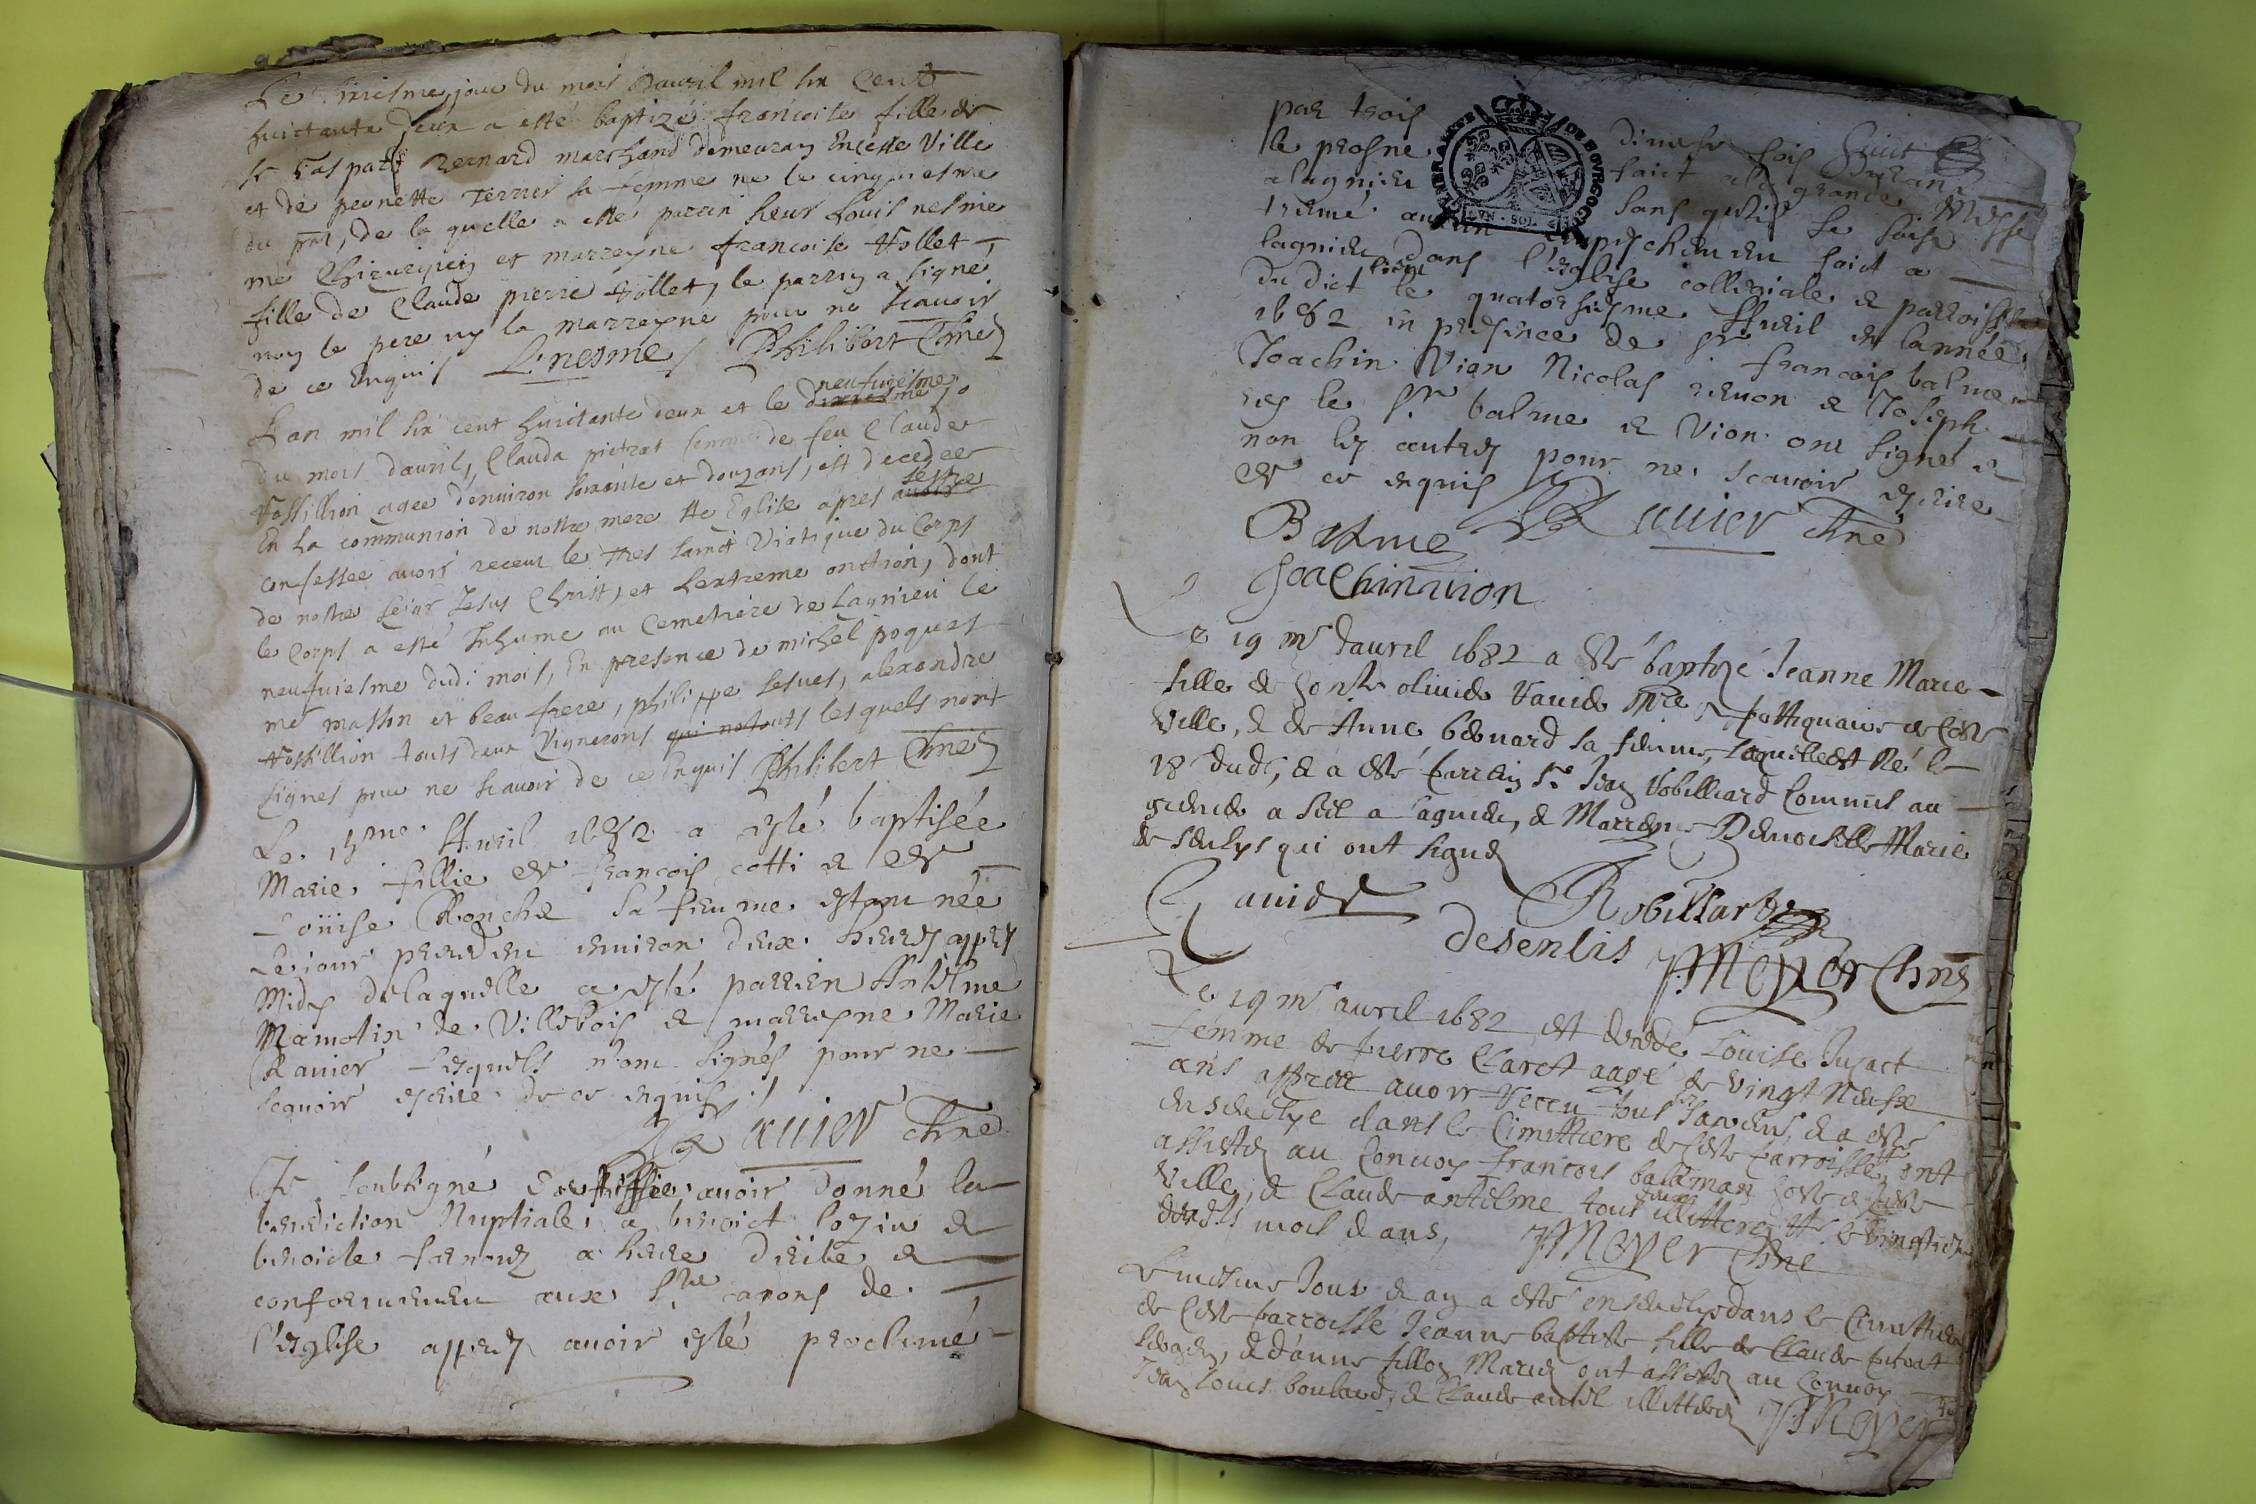 Le sixiesme jour du mois davril mil six cent
huictante deux a esté baptizé francoise fille de
sr Gaspard Bernard marchand demeurant en ceste Ville
et de pernette Terrier sa femme ne le cinquiesme
du pnt, de la quelle a esté parrin sieur Louis nesme
me Chirurgien et marreyne francoise Vollet
fille de Claude pierre Vollet, le parrin a signé
non le pere ny la marreyne pour ne scavoir
de ce Enquis L. nesme Philibert Chne
Lan mil six cent huictante deux et le dixiesme neufviesme jo
du mois davril, Clauda pietrat femme de feu Claude
Vossillion agee denviron soixante et douzans, est decedee
En la communion de nostre mere ste Eglise apres avoir sestre
confessee avoir receu le tres sainct Viatique du Corps
de nostre seigr Jesus Christ, et Lextreme onction, dont
le Corps a esté Inhume au Cemetiere de Lagnieu le
neufviesme dudi mois, En presence de michel poguet
me masson et beau frere, philippe sesues, alexandre
Vossillion touts deux Vignerons qui no touts lesquels nont
signes pour ne scavoir de ce Enquis Philibert Chne
Le 15me Avril 1682 a esté baptisée
Marie fillie de francois cotti et de
Loüise Ronche sa femme estant née
Le jour precedent environ deux heures apres
Midy de laquelle a esté parrien Anthelme
Mamolin de Villebois et marreyne Marie
Ravier Lesquels n'ont signés pour ne
scavoir escrire de ce enquis
Ravier Chne
Je soubsigné Certiffie avoir donné la
benediction Nuptiale a benoict lozin et
benoicte a
conformement aux Sts canons de
l'Esglise apres avoir esté proclamé
par trois
le prosne
a lagnieu faict a la grande Messe
aucun empeschement faict a
lagnieu dans l'esglise collegiale et parroissi
du dict lieu le quatorsiesme Avril en lannée
1682 en presence de sr francois balme
Joachin Vion Nicolas et Joseph
le sr balme et Vion ont signé et
non les autres pour ne scavoir escrire
de ce enquis
Balme Ravier Chne
Joachin vion
Le 19me davril 1682 a esté baptizé Jeanne Marie
fille de olivide Vavide Mre Apottiquaire de ceste
Ville, et de Anne bernard sa femme, laquelle est né le
18 dudt, et a esté parrein sr Jean Robilliard Commis au
grenier a sel a lagnieu, et Marreyne Demoiselle Marie
de senlys qui ont signé
Robillard
desenlis JMeyer Chne
Le 19me avril 1682 est decedé Louise Jujact
femme de pierre Claret aagé de vingt neufs
ans appres avoir receu tous ses sacremens, et a esté
ensevelye dans le Cimettiere de ceste parroisse, ont
assistés au Convoy francois baleman de ceste
Ville, et Claude antelme tous deux illitterez
dudt mois et ans, JMeyer Chne
Le mesme Jour et an a esté ensevelye dans le Cimettiere
de ceste parroisse Jeanne baptiste fille de Claude pitrat
et danne fillon Mariez ont assistez au Convoy
Jean Louis boulard, et Claude antel illitterez JMeyer